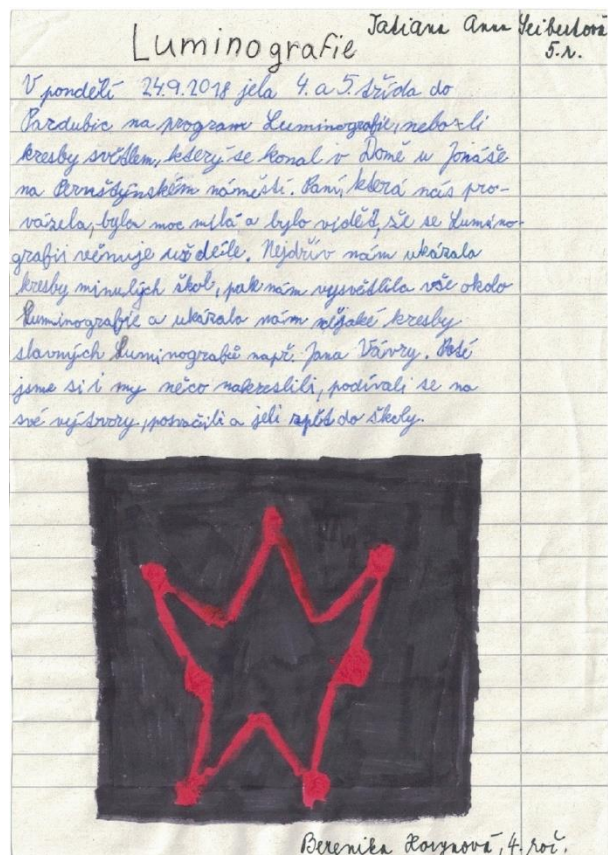 Luminografie
Tatiana Anna Seibertová
5.r.
V pondělí 24.9.2018 jela 4. a 5. třída do
Pardubic na program Luminografie, neboli
kresby světlem, který se konal v Domě u Jonáše
na Pernštýnském náměstí. Paní, která nás pro-
vázela, byla moc milá a bylo vidět, že se Lumino-
grafii věnuje už déle. Nejdřív nám ukázala
kresby minulých škol, pak nám vysvětlila vše okolo
Luminografie a ukázala nám nějaké kresby
slavných Luminografů např. Jana Vávry. Poté
jsme si i my něco nakreslili, podívali se na
své výtvory, posvačili a jeli zpět do školy.
Berenika 4. roč.